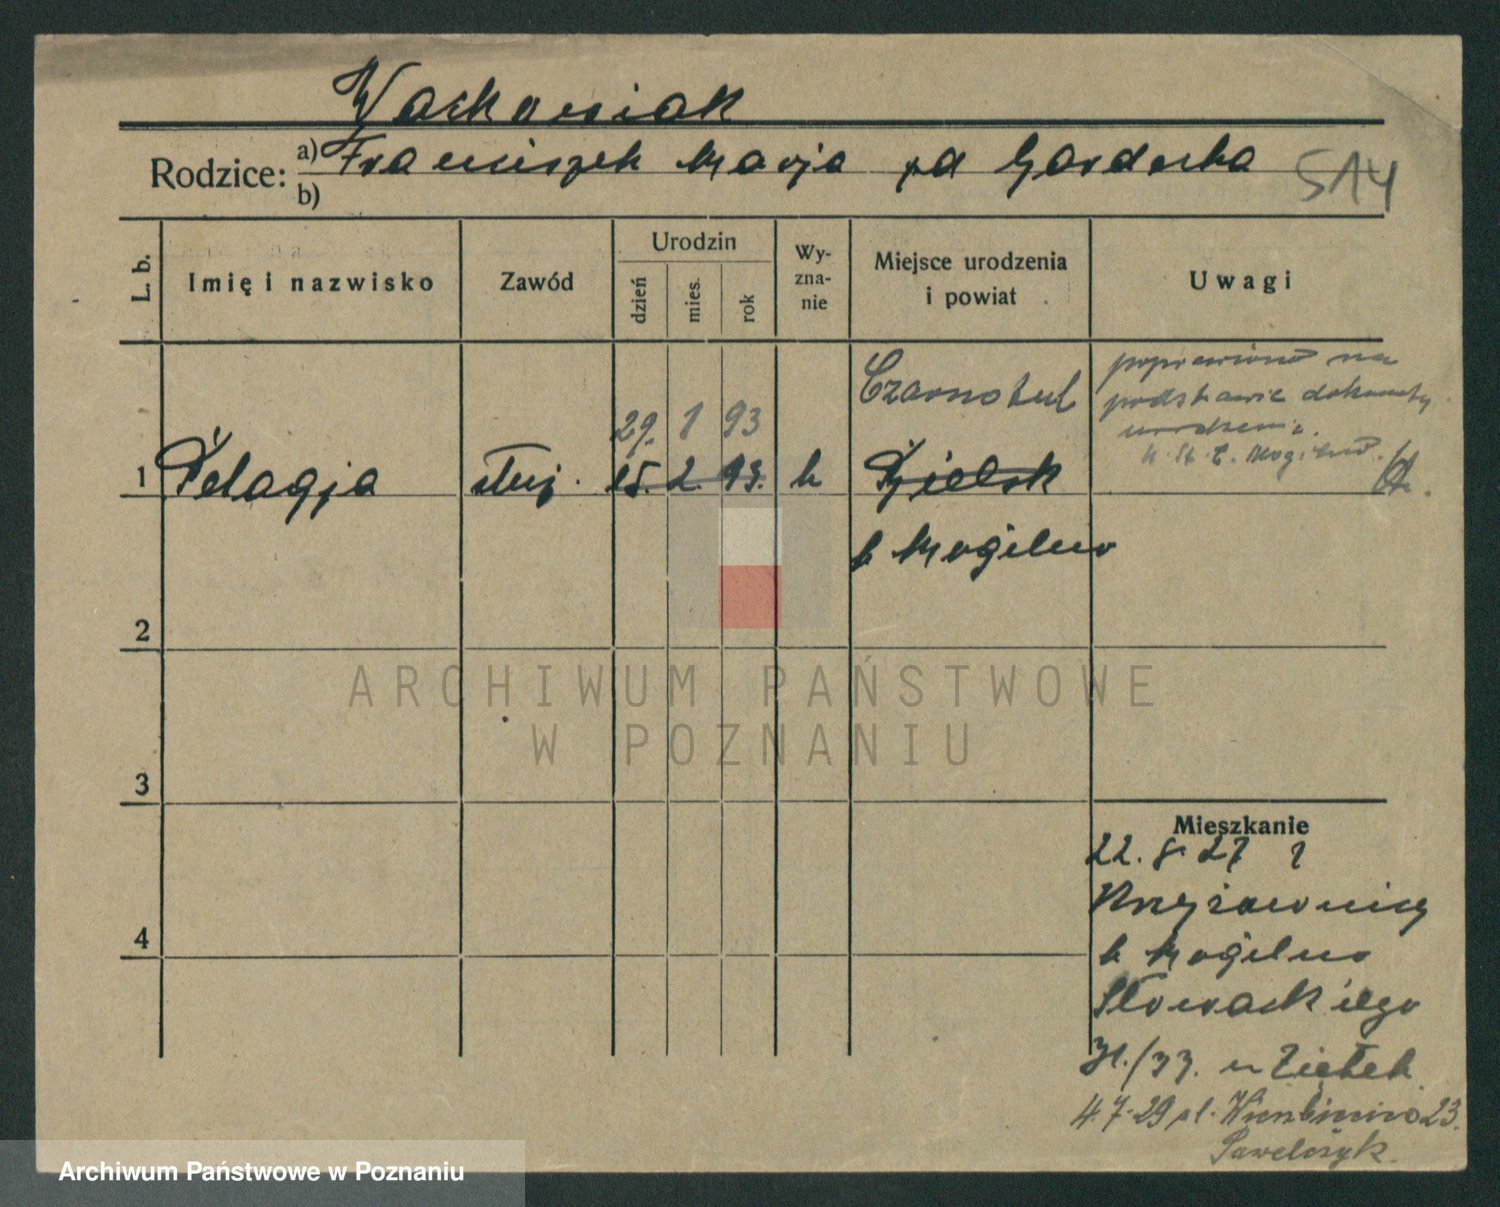 Wachowiak
Rodzice: a) Franciszek Marja zd Gardecka
b)
514
L. b. Imię i nazwisko Zawód Urodzin dzień mies. rok Wy-zna-nie Miejsce urodzenia i powiat Uwagi
Czarnotul
poprawiono na
podstawie dokumentu
urodzenia.
29. 1 93
1 Pelagja służ. 15. 2. 93. k
p. Mogilno
2
3
4
Mieszkanie
22. 8. 27
Krzyżownicy
p. Mogilno
Słowackiego
31./33. u Ziętek
4.7.29 pl. 23.
Pawelczyk.
ARCHIWUM PAŃSTWOWE
W POZNANIU
Archiwum Państwowe w Poznaniu